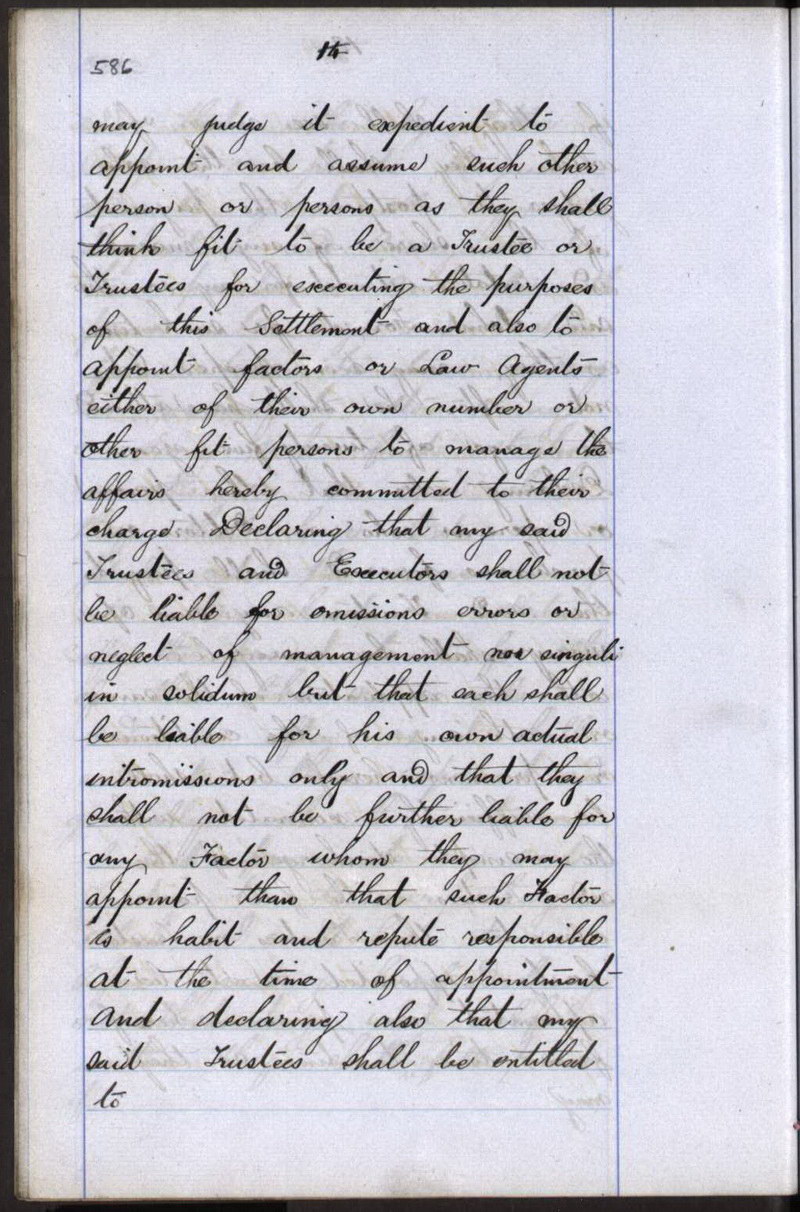 586
14
may judge it expedient to
appoint and assume such other
person or persons as they shall
think fit to be a Trustee or
Trustees for executing the purposes
of this Settlement and also to
appoint factors or Law Agents
either of their own number or
other fit persons to manage the
affairs hereby committed to their
charge Declaring that my said
Trustees and Executors shall not
be liable for omissions errors or
neglect of management nor singuli
in solidum but that each shall
be liable for his own actual
intromissions only and that they
shall not be further liable for
any Factor whom they may
appoint than that such Factor
is habit and repute responsible
at the time of appointment
and declaring also that my
said Trustees shall be entitled
to